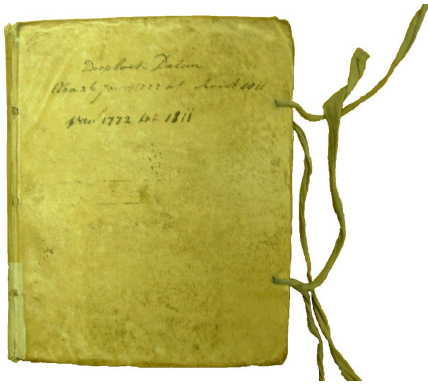 Doopboek Dalen
van 26 1772 tot maart 1811
van 1772 tot 1811